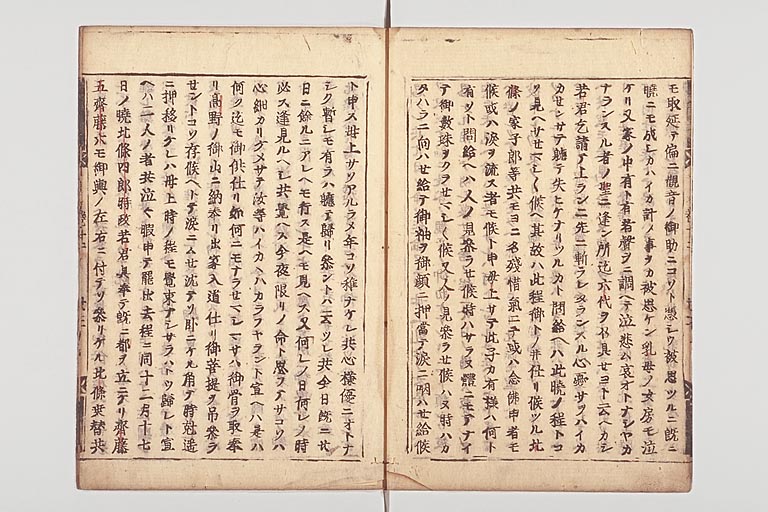 モ取延テ偏ニ観音ノ御助ニコソト愁シク被思ツルニ既ニ
暁ニモ成シカハイカ計ノ事ヲカ被思ケン乳母ノ女房モ泣
ケリ又家ノ中有ト有者聲ヲ調ヘテ泣悲ム哀オトナシヤカ
ナランスル者ノ聖ニ逢ン所迄六代ヲ具セヨト云ヘカシ
若君乞請テ上ランニ先ニ斬ランスル心憂サハイカ
カセンサテ聴テ失ヒケナリツルカト問給ヘハ此暁ノ程トコ
ソ見ヘサセマシ候ヘ其故ハ此程御トノ井仕リ候ツル北
條ノ家子郎等共モヨニ名残惜氣ニテ或ハ念佛申者モ
候或ハ涙ヲ流ス者モ候ト申母上サテ此子カ有様ハ何ト
有ソト問給ヘハ人ノ見参ラセ候時ハサラヌ體ニモテナイ
テ御数珠ヲクラセマシ候又人ノ見参ラセ候ハヌ時ハカ
タハラニ向ハセ給テ御袖ヲ御顔ニ押當テ涙ニ咽ハセ給候
ト申ス母上サソアルラメ年コソ稚ナケレ共心様優ニオトナ
シク暫シモ有ラハ聴テ歸リ参ントハ云ツレ共今日既ニ廿
日ニ餘ルニアレヘモ行ス是ヘモ見ヘス又何レノ日何レノ時
必ス逢見ルヘシ共覺ヘス今夜限リノ命ト思テサコソハ
心細カリケメサテ汝等ハイカヽハカラフヤラント宣ヘハ是ハ
何ク迄モ御供仕リ如何ニモナラセマシサハ御骨ヲ取奉
リ高野ノ御山ニ納奉リ出家入道仕リ御菩提ヲ吊参ラ
セントコソ存候ヘトテ涙ニムセ沈テソ臥ニケル稍テ時剋遥
ニ押移リケレハ母上時ノ程モ覺束ナシサラハトク歸レト宣
ヘハ二人ノ者共泣々暇申テ罷出去程ニ同十二月十七
日ノ暁北條四郎時政若君具奉テ既ニ都ヲ立ニケリ齋藤
五齋藤六モ御輿ノ左右ニ付テソ参リケル北條乗替共